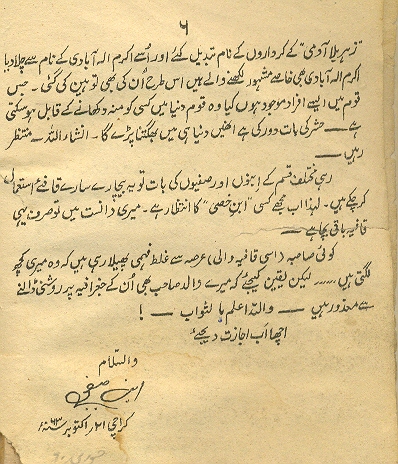 ۶
"زہریلا آدمی" کے کرداروں کے نام تبدیل کئے اور اُسے اکرم الہ آبادی کے نام سے چلا دیا
اکرم الہ آبادی بھی خاصے مشہور لکھنے والے ہیں اس طرح اُن کی بھی تو ہین کی گئی۔ جس
قوم میں ایسے افراد موجود ہوں کیا وہ قوم دنیا میں کسی کو منہ دکھانے کے قابل ہو سکتی
ہے — حشر کی بات دور کی ہے انھیں دنیا ہی میں بھگتنا پڑے گا۔ انشاء اللہ — منتظر
رہیں —
رہی مختلف قسم کے اِبنوں اور صفیوں کی بات تو یہ بیچارے سارے قافئے استعمال
کر چکے ہیں۔ لہذا اب مجھے کسی "ابنِ خصی" کا انتظار ہے۔ میری دانست میں تو صرف یہی
قافیہ باقی بچا ہے —
کوئی صاحبہ (اسی قافیہ والی) عرصہ سے غلط فہمی پھیلا رہی ہیں کہ وہ میری کچھ
لگتی ہیں ..... لیکن یقین کیجئے کہ میرے والد صاحب بھی اُن کے جغرافیہ پر روشنی ڈالنے
سے معذور ہیں — واللہ اعلم بالثواب — !
اچھا اب اجازت دیجئے
والسّلام
ابن صفی
کراچی ۲۱ اکتوبر سنہ ۶۳ء